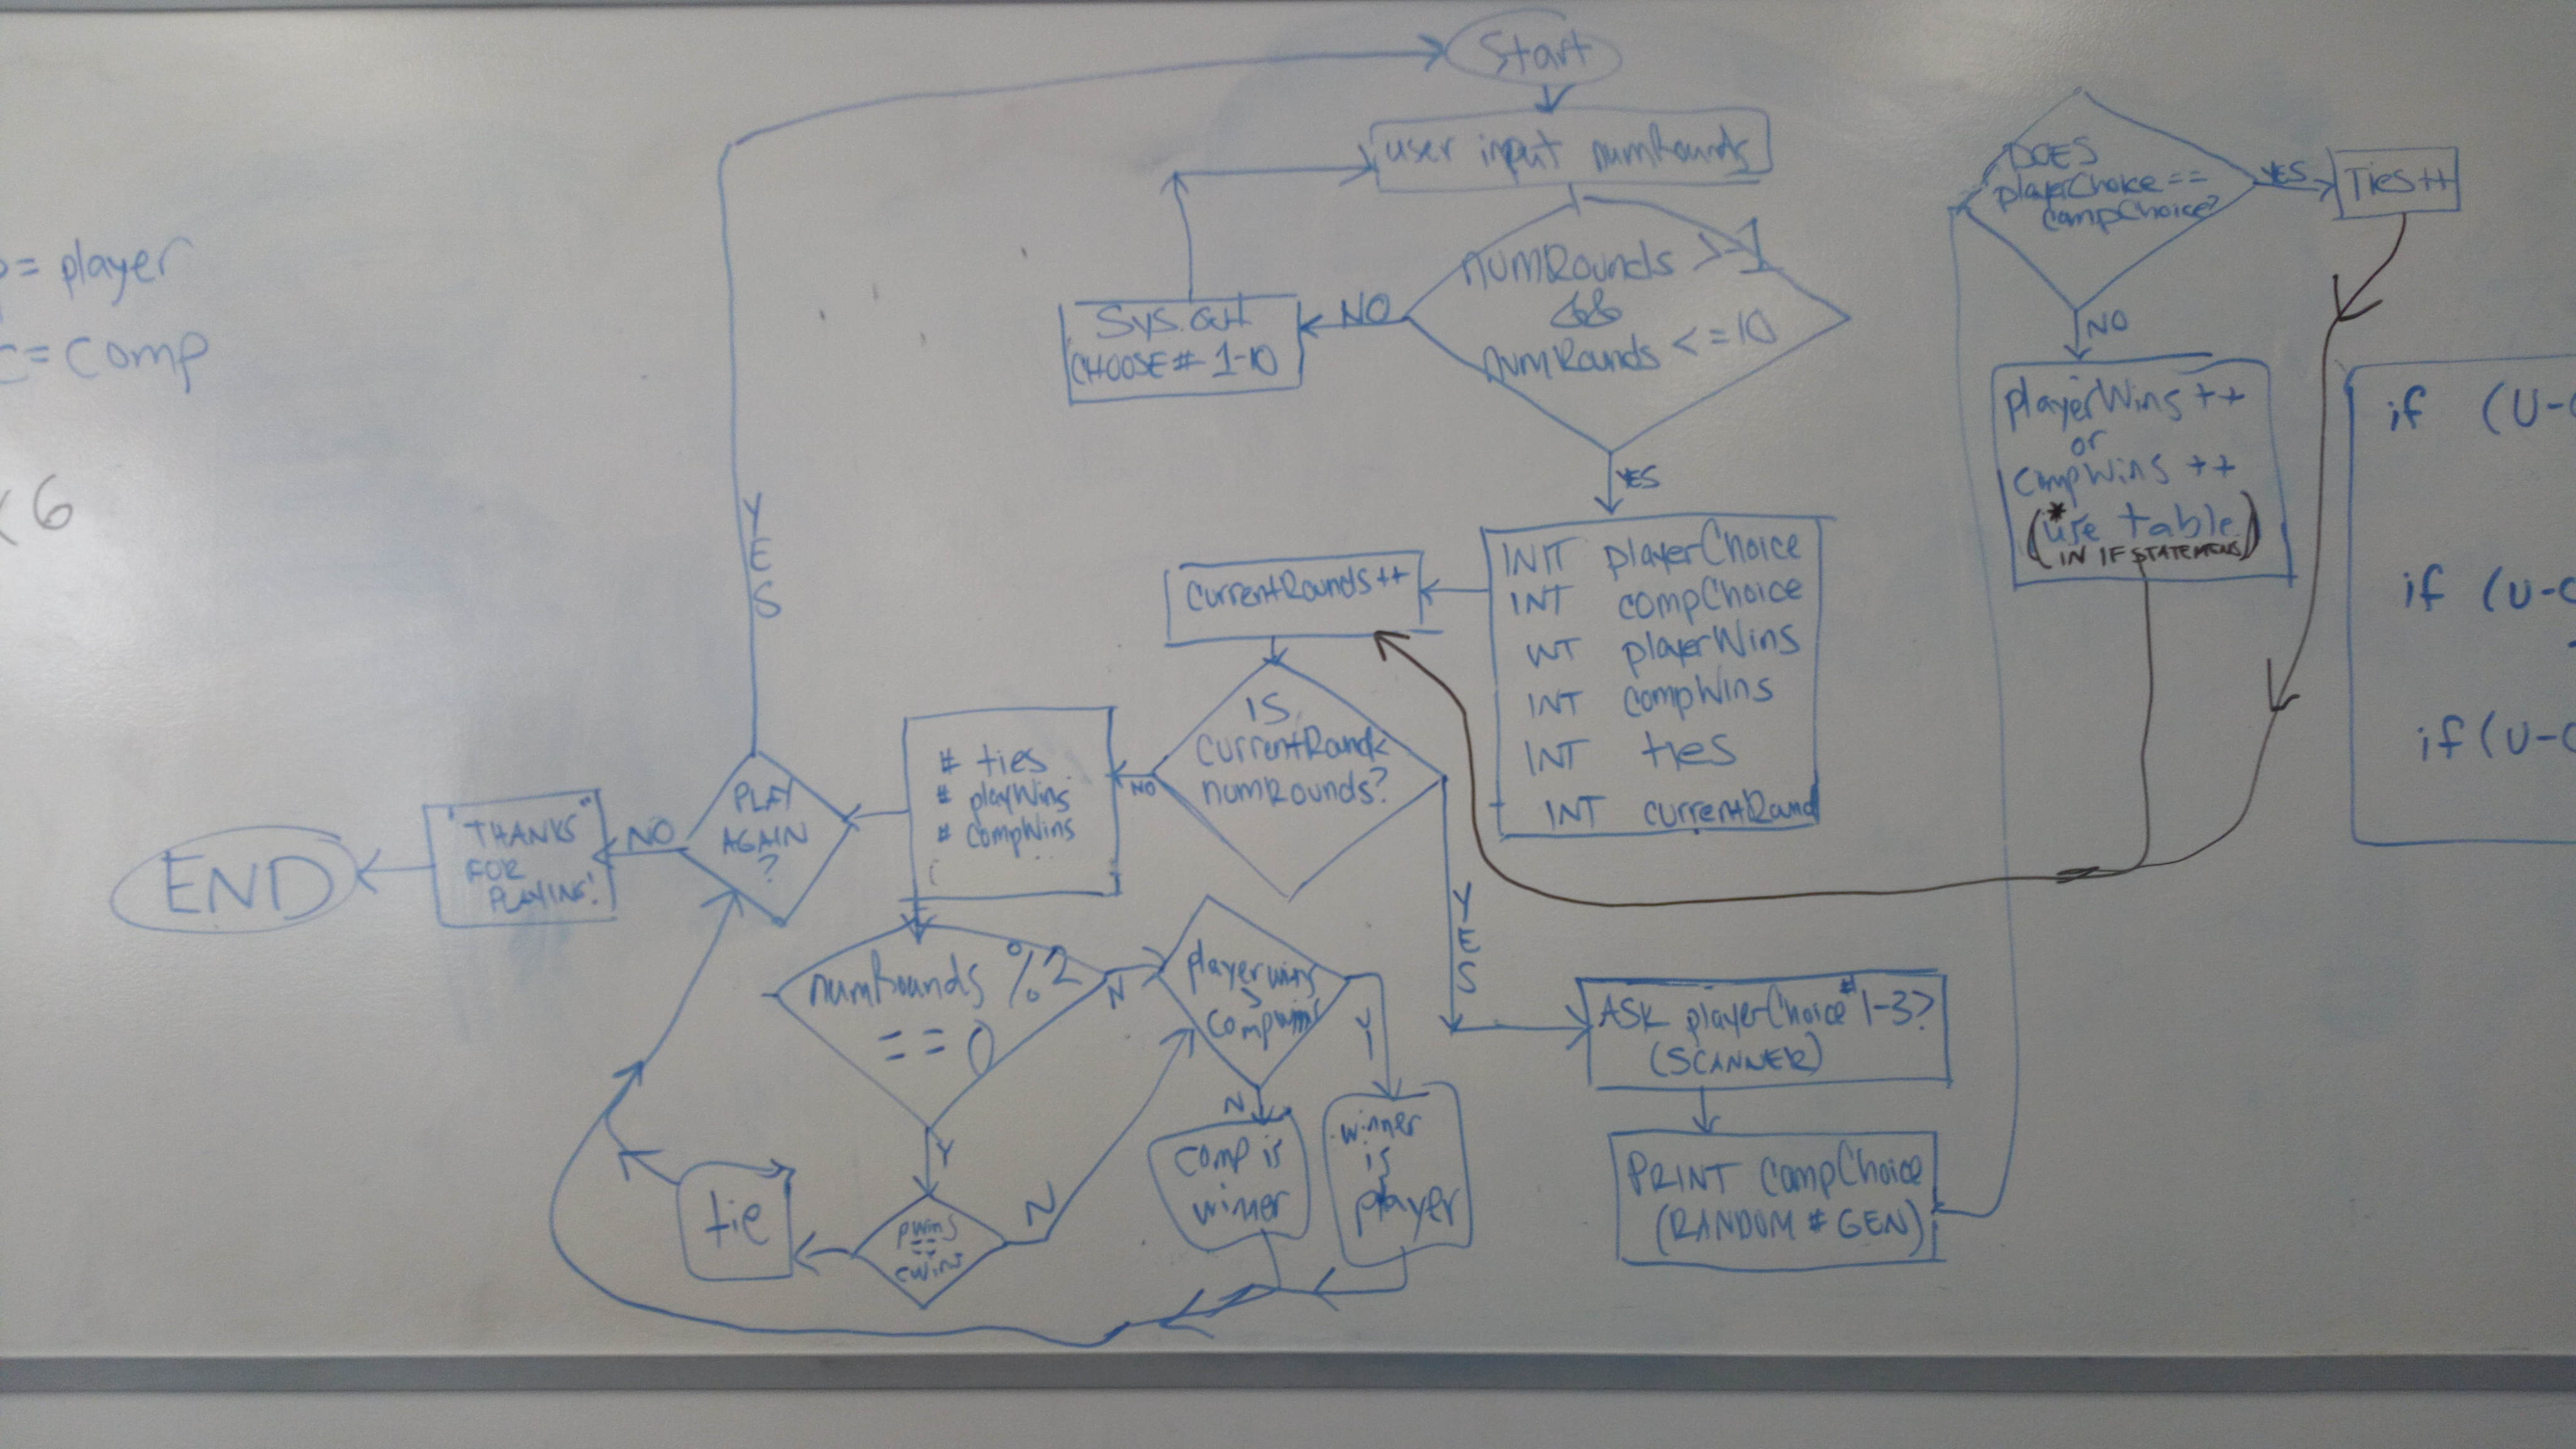 Start
user input numRounds
numRounds >-1
&&
numRounds <=10
NO
Sys.out
CHOOSE # 1-10
YES
INIT playerChoice
INT compChoice
INT playerWins
INT compWins
INT ties
INT currentRound
currentRounds++
IS
currentRound<
numRounds?
NO
# ties
# playWins
# compWins
PLAY
AGAIN
?
YES
NO
"THANKS"
FOR
PLAYING!
END
numRounds %2
== 0
N
Y
pwins
==
cwins
N
tie
playerwins
>
compwins
N
Y
comp is
winner
winner
is
player
YES
ASK playerChoice # 1-3?
(SCANNER)
PRINT compChoice
(RANDOM # GEN)
DOES
playerChoice ==
compChoice?
YES
Ties++
NO
playerWins ++
or
compWins ++
(*use table
IN IF STATEMENS)
if (U-C
if (U-C
if (U-C
p = player
c = comp
< 6